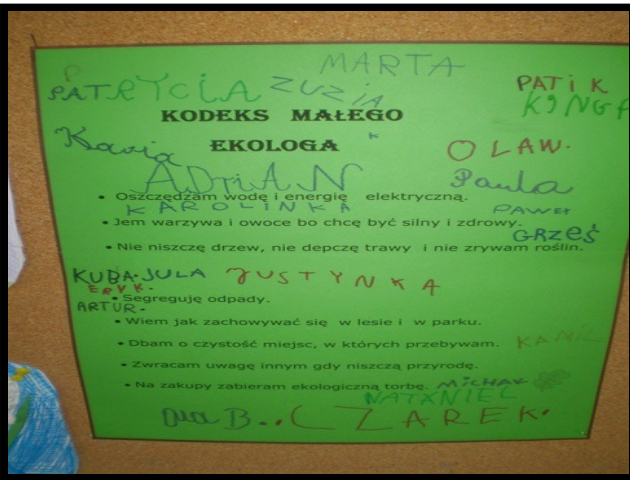 MARTA
PATRYCIA ZUZIA PATIK
KINGA
KODEKS MAŁEGO
EKOLOGA
Kasia OLAW.
ADRIAN Paula
• Oszczędzam wodę i energię elektryczną.
KAROLINKA PAWEŁ
• Jem warzywa i owoce bo chcę być silny i zdrowy.
GRZEŚ
• Nie niszczę drzew, nie depczę trawy i nie zrywam roślin.
KUBA. JULA JUSTYNKA
ERYK.
• Segreguję odpady.
ARTUR.
• Wiem jak zachowywać się w lesie i w parku.
• Dbam o czystość miejsc, w których przebywam. KAMIL
• Zwracam uwagę innym gdy niszczą przyrodę.
• Na zakupy zabieram ekologiczną torbę. MICHAŁ
NATANIEL
Ola B.. CZAREK.